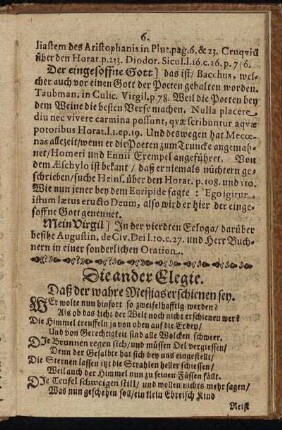 6.
liastem des Aristophanis in Plut. pag. 6. & 23. Cruqvium
über den Horat. p. 233. Diodor. Sicul. l. 16. c. 16. p. 756.
Der eingesoffne Gott] das ist/ Bacchus, wel-
cher auch vor einen Gott der Poeten gehalten worden.
Taubman. in Culic. Virgil. p. 78. Weil die Poeten bey
dem Weine die besten Verse machen. Nulla placere
diu nec vivere carmina possunt, qvæ scribuntur aqvæ
potoribus Horat. l. 1. ep. 19. Und deswegen hat Mecœ-
nas allezeit/ wenn er die Poeten zum Truncke angemah-
net/ Homeri und Ennii Exempel angeführet. Von
dem Æschylo ist bekant/ daß er niemals nüchtern ge-
schrieben/ suche Heins. über den Horat. p. 108. und 110.
Wie nun jener bey dem Euripide sagte: Ego igitur
istum lætus eructo Deum, also wird er hier der einge-
soffne Gott genennet.
Mein Virgil] In der vierdten Ecloga/ darüber
besihe Augustin. de Civ. Dei l. 10. c. 27. und Herr Buch-
nern in einer sonderlichen Oration.
Die ander Elegie.
Daß der wahre Messias erschienen sey.
WEr wolte nun hinfort so zweifelhafftig werden?
Als ob das Licht der Welt noch nicht erschienen wer?
Die Himmel treuffeln ja von oben auf die Erden/
Und von Gerechtigkeit sind alle Wolcken schwer.
Die Brunnen regen sich/ und müssen Oel vergiessen/
Denn der Gesalbte hat sich bey uns eingestellt/
Die Sternen lassen itzt die Strahlen heller schiessen/
Weil auch der Himmel nun zu seinen Füssen fällt.
Die Teufel schweigen still/ und wollen nichts mehr sagen/
Was nun geschehen soll/ ein klein Ebreisch Kind
Heist